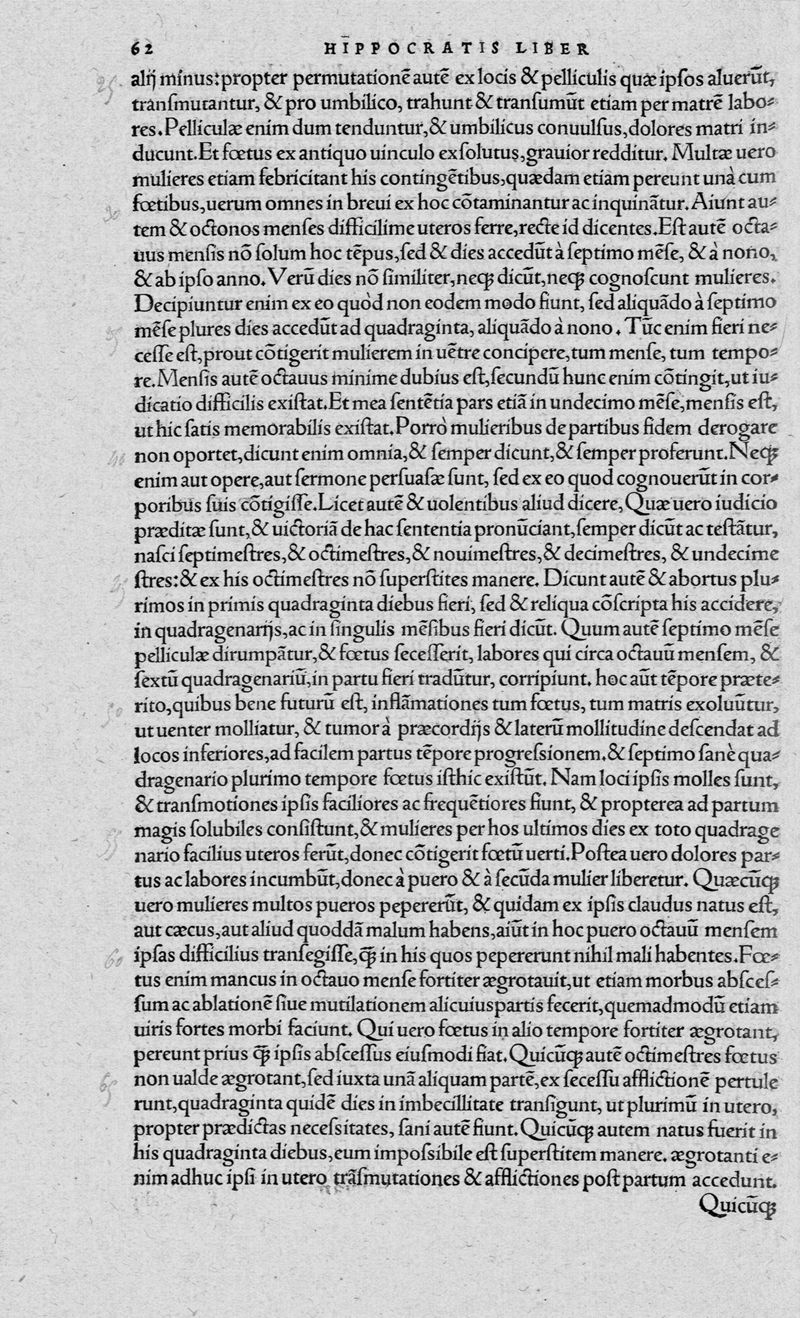 62 HIPPOCRATIS LIBER
alij minus: propter permutationẽ autẽ ex locis & pelliculis quæ ipſos aluerũt,
tranſmutantur, & pro umbilico, trahunt & tranſumũt etiam per matrẽ labo⸗
res. Pelliculæ enim dum tenduntur, & umbilicus conuulſus, dolores matri in⸗
ducunt. Et fœtus ex antiquo uinculo exſolutus, grauior redditur. Multæ uero
mulieres etiam febricitant his contingẽtibus, quædam etiam pereunt unà cum
fœtibus, uerum omnes in breui ex hoc cõtaminantur ac inquinãtur. Aiunt au⸗
tem & octonos menſes difficilime uteros ferre, recte id dicentes. Eſt autẽ octa⸗
uus menſis nõ ſolum hoc tẽpus, ſed & dies accedũt à ſeptimo mẽſe, & à nono,
& ab ipſo anno. Verũ dies nõ ſimiliter, neqꝫ dicũt, neqꝫ cognoſcunt mulieres.
Decipiuntur enim ex eo quòd non eodem modo fiunt, ſed aliquãdo à ſeptimo
mẽſe plures dies accedũt ad quadraginta, aliquãdo à nono. Tũc enim fieri ne⸗
ceſſe eſt, prout cõtigerit mulierem in uẽtre concipere, tum menſe, tum tempo⸗
re. Menſis autẽ octauus minime dubius eſt, ſecundũ hunc enim cõtingit, ut iu⸗
dicatio difficilis exiſtat. Et mea ſentẽtia pars etiã in undecimo mẽſe, menſis eſt,
ut hic ſatis memorabilis exiſtat. Porrò mulieribus de partibus fidem derogare
non oportet, dicunt enim omnia, & ſemper dicunt, & ſemper proferunt. Neqꝫ
enim aut opere, aut ſermone perſuaſæ ſunt, ſed ex eo quod cognouerũt in cor⸗
poribus ſuis cõtigiſſe. Licet autẽ & uolentibus aliud dicere, Quæ uero iudicio
præditæ ſunt, & uictoriã de hac ſententia pronũciant, ſemper dicũt ac teſtãtur,
naſci ſeptimeſtres, & octimeſtres, & nouimeſtres, & decimeſtres, & undecime
ſtres: & ex his octimeſtres nõ ſuperſtites manere. Dicunt autẽ & abortus plu⸗
rimos in primis quadraginta diebus fieri, ſed & reliqua cõſcripta his accidere,
in quadragenarijs, ac in ſingulis mẽſibus fieri dicũt. Quum autẽ ſeptimo mẽſe
pelliculæ dirumpãtur, & fœtus ſeceſſerit, labores qui circa octauũ menſem, &
ſextũ quadragenariũ, in partu fieri tradũtur, corripiunt. hoc aũt tẽpore præte⸗
rito, quibus bene futurũ eſt, inflãmationes tum fœtus, tum matris exoluũtur,
ut uenter molliatur, & tumor à præcordijs & laterũ mollitudine deſcendat ad
locos inferiores, ad facilem partus tẽpore progreſsionem. & ſeptimo ſanè qua⸗
dragenario plurimo tempore fœtus iſthic exiſtũt. Nam loci ipſis molles ſunt,
& tranſmotiones ipſis faciliores ac frequẽtiores fiunt, & propterea ad partum
magis ſolubiles conſiſtunt, & mulieres per hos ultimos dies ex toto quadrage
nario facilius uteros ferũt, donec cõtigerit fœtũ uerti. Poſtea uero dolores par⸗
tus ac labores incumbũt, donec à puero & à ſecũda mulier liberetur. Quæcũqꝫ
uero mulieres multos pueros pepererũt, & quidam ex ipſis claudus natus eſt,
aut cæcus, aut aliud quoddã malum habens, aiũt in hoc puero octauũ menſem
ipſas difficilius tranſegiſſe, q̃ꝫ in his quos pepererunt nihil mali habentes. Fœ⸗
tus enim mancus in octauo menſe fortiter ægrotauit, ut etiam morbus abſceſ⸗
ſum ac ablationẽ ſiue mutilationem alicuius partis fecerit, quemadmodũ etiam
uiris fortes morbi faciunt. Qui uero fœtus in alio tempore fortiter ægrotant,
pereunt prius q̃ꝫ ipſis abſceſſus eiuſmodi fiat. Quicũqꝫ autẽ octimeſtres fœtus
non ualde ægrotant, ſed iuxta unã aliquam partẽ, ex ſeceſſu afflictionẽ pertule
runt, quadraginta quidẽ dies in imbecillitate tranſigunt, ut plurimũ in utero,
propter prædictas neceſsitates, ſani autẽ fiunt. Quicũqꝫ autem natus fuerit in
his quadraginta diebus, eum impoſsibile eſt ſuperſtitem manere. ægrotanti e⸗
nim adhuc ipſi in utero trãſmutationes & afflictiones poſt partum accedunt.
Quicũqꝫ